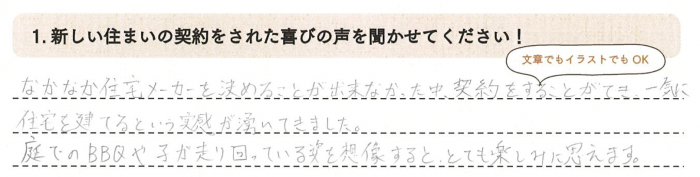 1. 新しい住まいの契約をされた喜びの声を聞かせてください!
文章でもイラストでもOK
なかなか住宅メーカーを決めることが出来なかった中、契約をすることができ、一気に
住宅を建てるという実感が湧いてきました。
庭でのBBQや子が走り回っている姿を想像すると、とても楽しみに思えます。